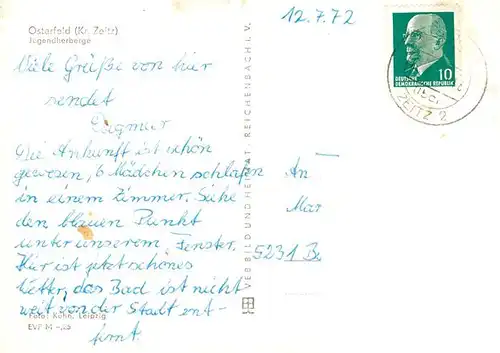 Osterfeld (Kr. Zeitz)
Jugendherberge
12.7.72
DEUTSCHE
DEMOKRATISCHE REPUBLIK
10
ZEITZ 2
Viele Grüße von hier
sendet
Dagmar
Die Ankunft ist schön
gewesen, 6 Mädchen schlafen
in einem Zimmer. Siehe
den blauen Punkt
unter unserem Fenster.
Hier ist jetzt schönes
Wetter, das Bad ist nicht
weit von der Stadt ent-
fernt.
An
Mar
5231 B
VEB BILD UND HEIMAT, REICHENBACH I. V.
Foto: Kühn, Leipzig
EVP M -,20